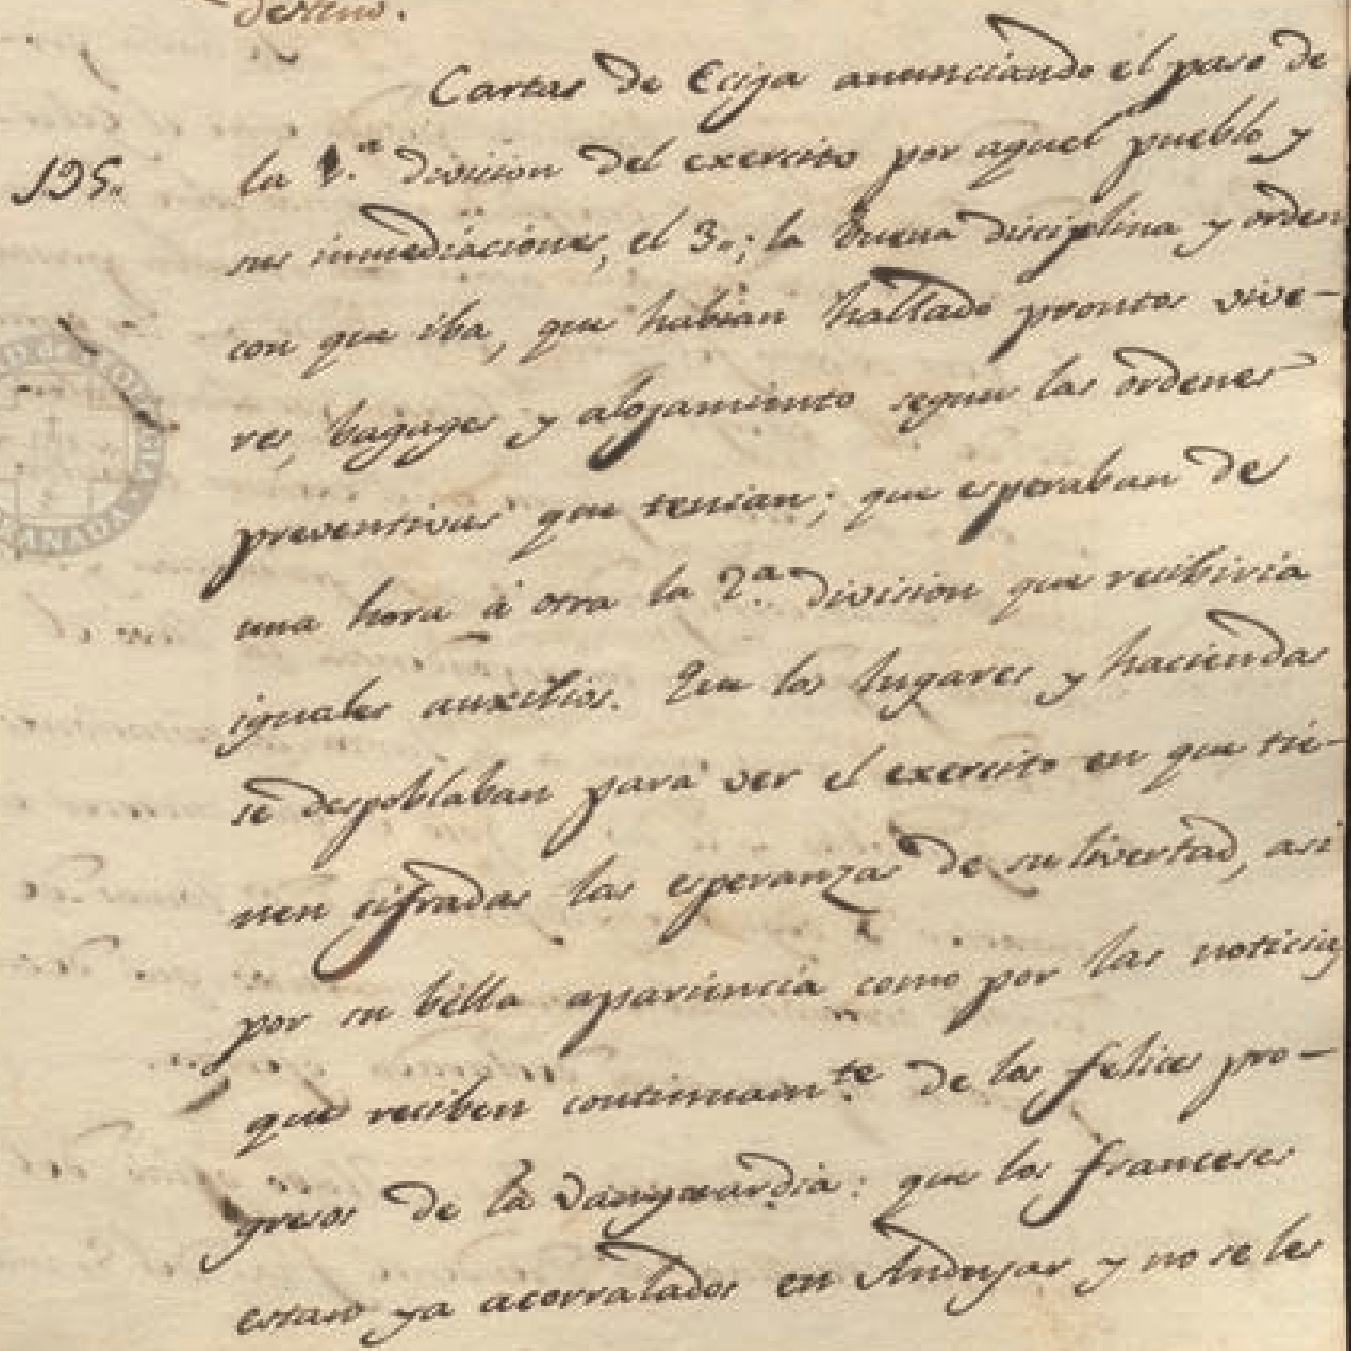 destino.
Cartas de Ecija anunciando el paso de
195.. la 1.ª division del exercito por aquel pueblo y
sus inmediaciones, el 3.; la buena disciplina y orden
con que iba, que habian hallado prontos vive-
res, bagages y alojamiento segun las ordenes
preventivas que tenian; que esperaban de
una hora á otra la 2.ª division que recibiria
iguales auxilios. Que los lugares y haciendas
se despoblaban para ver el exercito en que tie-
nen cifradas las esperanzas de su livertad, asi
por su bella apariencia como por las noticias
que reciben continuam.te de los felices pro-
gresos de la Vanguardia: que los franceses
estan ya acorralados en Andujar y no se les